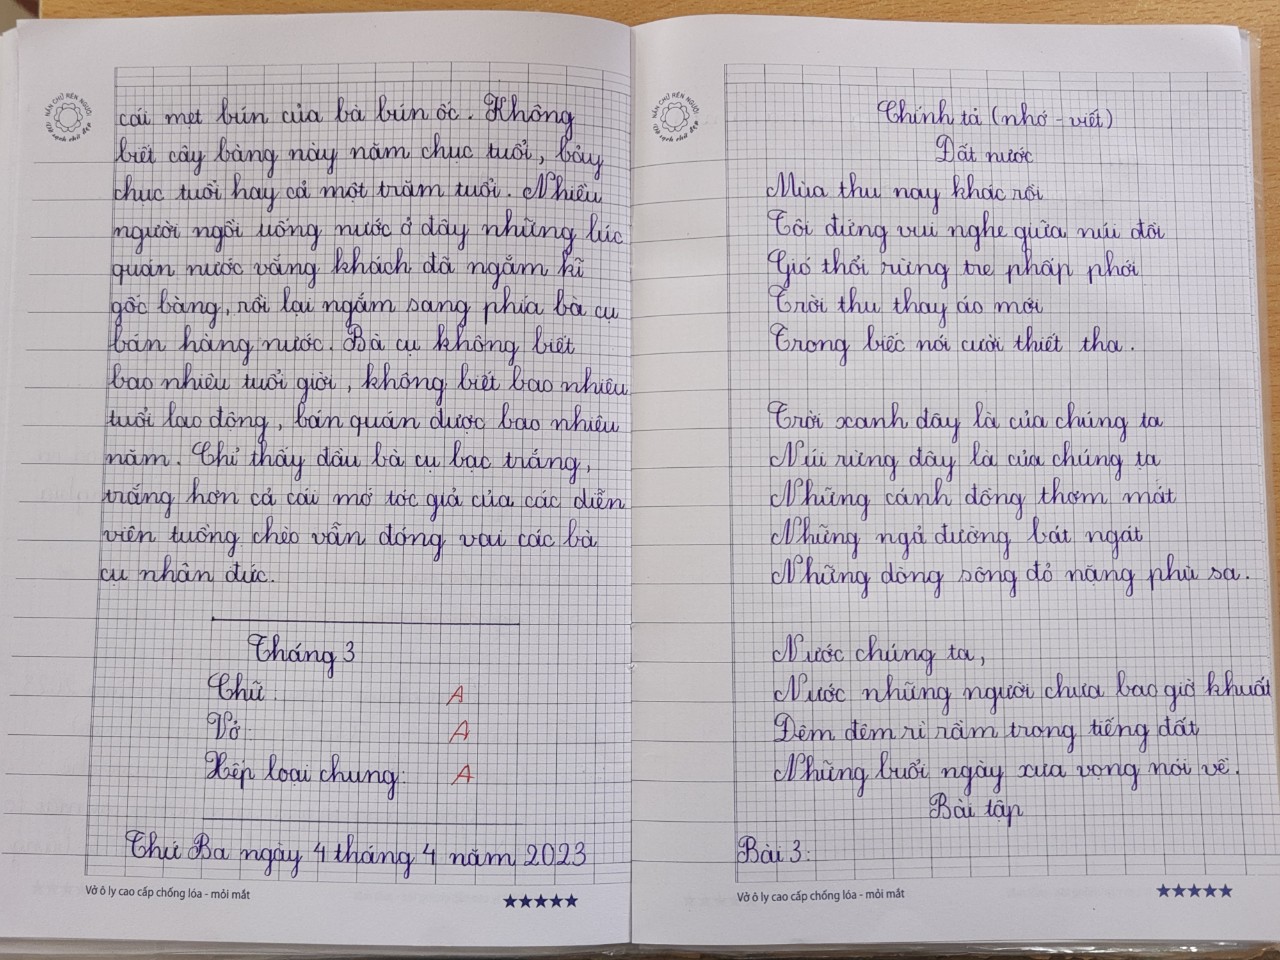 NẮN CHỮ RÈN NGƯỜI
cái mẹt bún của bà bún ốc. Không
biết cây bàng này năm chục tuổi, bảy
chục tuổi hay cả một trăm tuổi. Nhiều
người ngồi uống nước ở đây những lúc
quán nước vắng khách đã ngắm kĩ
gốc bàng, rồi lại ngắm sang phía bà cụ
bán hàng nước. Bà cụ không biết
bao nhiêu tuổi giời, không biết bao nhiêu
tuổi lao động, bán quán được bao nhiêu
năm. Chỉ thấy đầu bà cụ bạc trắng,
trắng hơn cả cái mớ tóc giả của các diễn
viên tuồng chèo vẫn đóng vai các bà
cụ nhân đức.
Tháng 3
Chữ: A
Vở: A
Xếp loại chung: A
Thứ Ba ngày 4 tháng 4 năm 2023
Vở ô ly cao cấp chống lóa - mỏi mắt
NẮN CHỮ RÈN NGƯỜI
Chính tả (nhớ - viết)
Đất nước
Mùa thu nay khác rồi
Tôi đứng vui nghe giữa núi đồi
Gió thổi rừng tre phấp phới
Trời thu thay áo mới
Trong biếc nói cười thiết tha.
Trời xanh đây là của chúng ta
Núi rừng đây là của chúng ta
Những cánh đồng thơm mát
Những ngả đường bát ngát
Những dòng sông đỏ nặng phù sa.
Nước chúng ta,
Nước những người chưa bao giờ khuất
Đêm đêm rì rầm trong tiếng đất
Những buổi ngày xưa vọng nói về.
Bài tập
Bài 3:
Vở ô ly cao cấp chống lóa - mỏi mắt